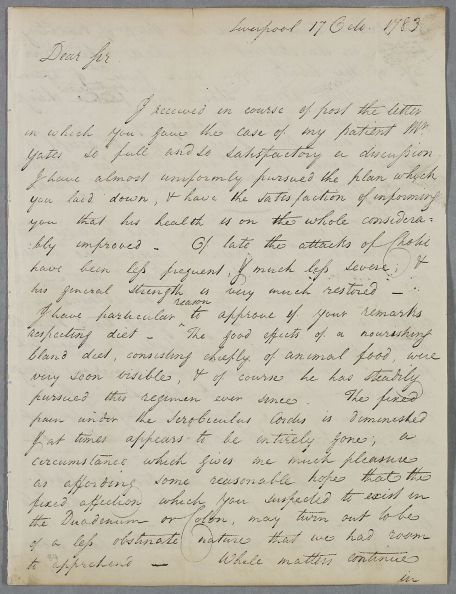 Liverpool 17 Octo. 1783
Dear Sir
I received in course of post the letter
in which you gave the case of my patient Mr
Yates so full and so satisfactory a discussion.
I have almost uniformly pursued the plan which
you laid down, & have the satisfaction of informing
you that his health is on the whole considera-
bly improved - Of late the attacks of Cholic
have been less frequent, & much less severe, &
his general strength is very much restored -
I have particular reason to approve of your remarks
respecting diet - The good effects of a nourishing
bland diet, consisting chiefly of animal food, were
very soon visible, & of course he has steadily
pursued this regimen ever since The fixed
pain under the Scrobiculus Cordis is diminished
& at times appears to be entirely gone; a
circumstance which gives me much pleasure
as affording some reasonable hope that the
fixed affection which you suspected to exist in
the Duodenum or Colon, may turn out to be
of a less obstinate nature that we had room
to apprehend - While matters continue
in